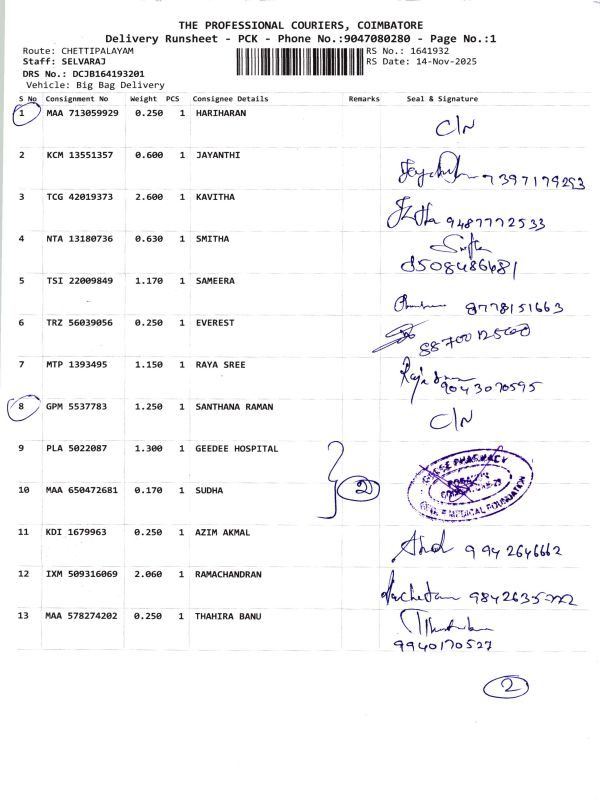 THE PROFESSIONAL COURIERS, COIMBATORE
Delivery Runsheet - PCK - Phone No.:9047080280 - Page No.:1
Route: CHETTIPALAYAM RS No.: 1641932
Staff: SELVARAJ RS Date: 14-Nov-2025
DRS No.: DCJB164193201
Vehicle: Big Bag Delivery
S No Consignment No Weight PCS Consignee Details Remarks Seal & Signature
1 MAA 713059929 0.250 1 HARIHARAN
C/N
2 KCM 13551357 0.600 1 JAYANTHI
7397179293
3 TCG 42019373 2.600 1 KAVITHA
9487772533
4 NTA 13180736 0.630 1 SMITHA
8508486681
5 TSI 22009849 1.170 1 SAMEERA
8778151663
6 TRZ 56039056 0.250 1 EVEREST
7 MTP 1393495 1.150 1 RAYA SREE
9043070595
8 GPM 5537783 1.250 1 SANTHANA RAMAN
C/N
9 PLA 5022087 1.300 1 GEEDEE HOSPITAL
PHARMACY
MEDICAL FOUNDATION
10 MAA 650472681 0.170 1 SUDHA
2
11 KDI 1679963 0.250 1 AZIM AKMAL
9942646662
12 IXM 509316069 2.060 1 RAMACHANDRAN
13 MAA 578274202 0.250 1 THAHIRA BANU
9940170527
2